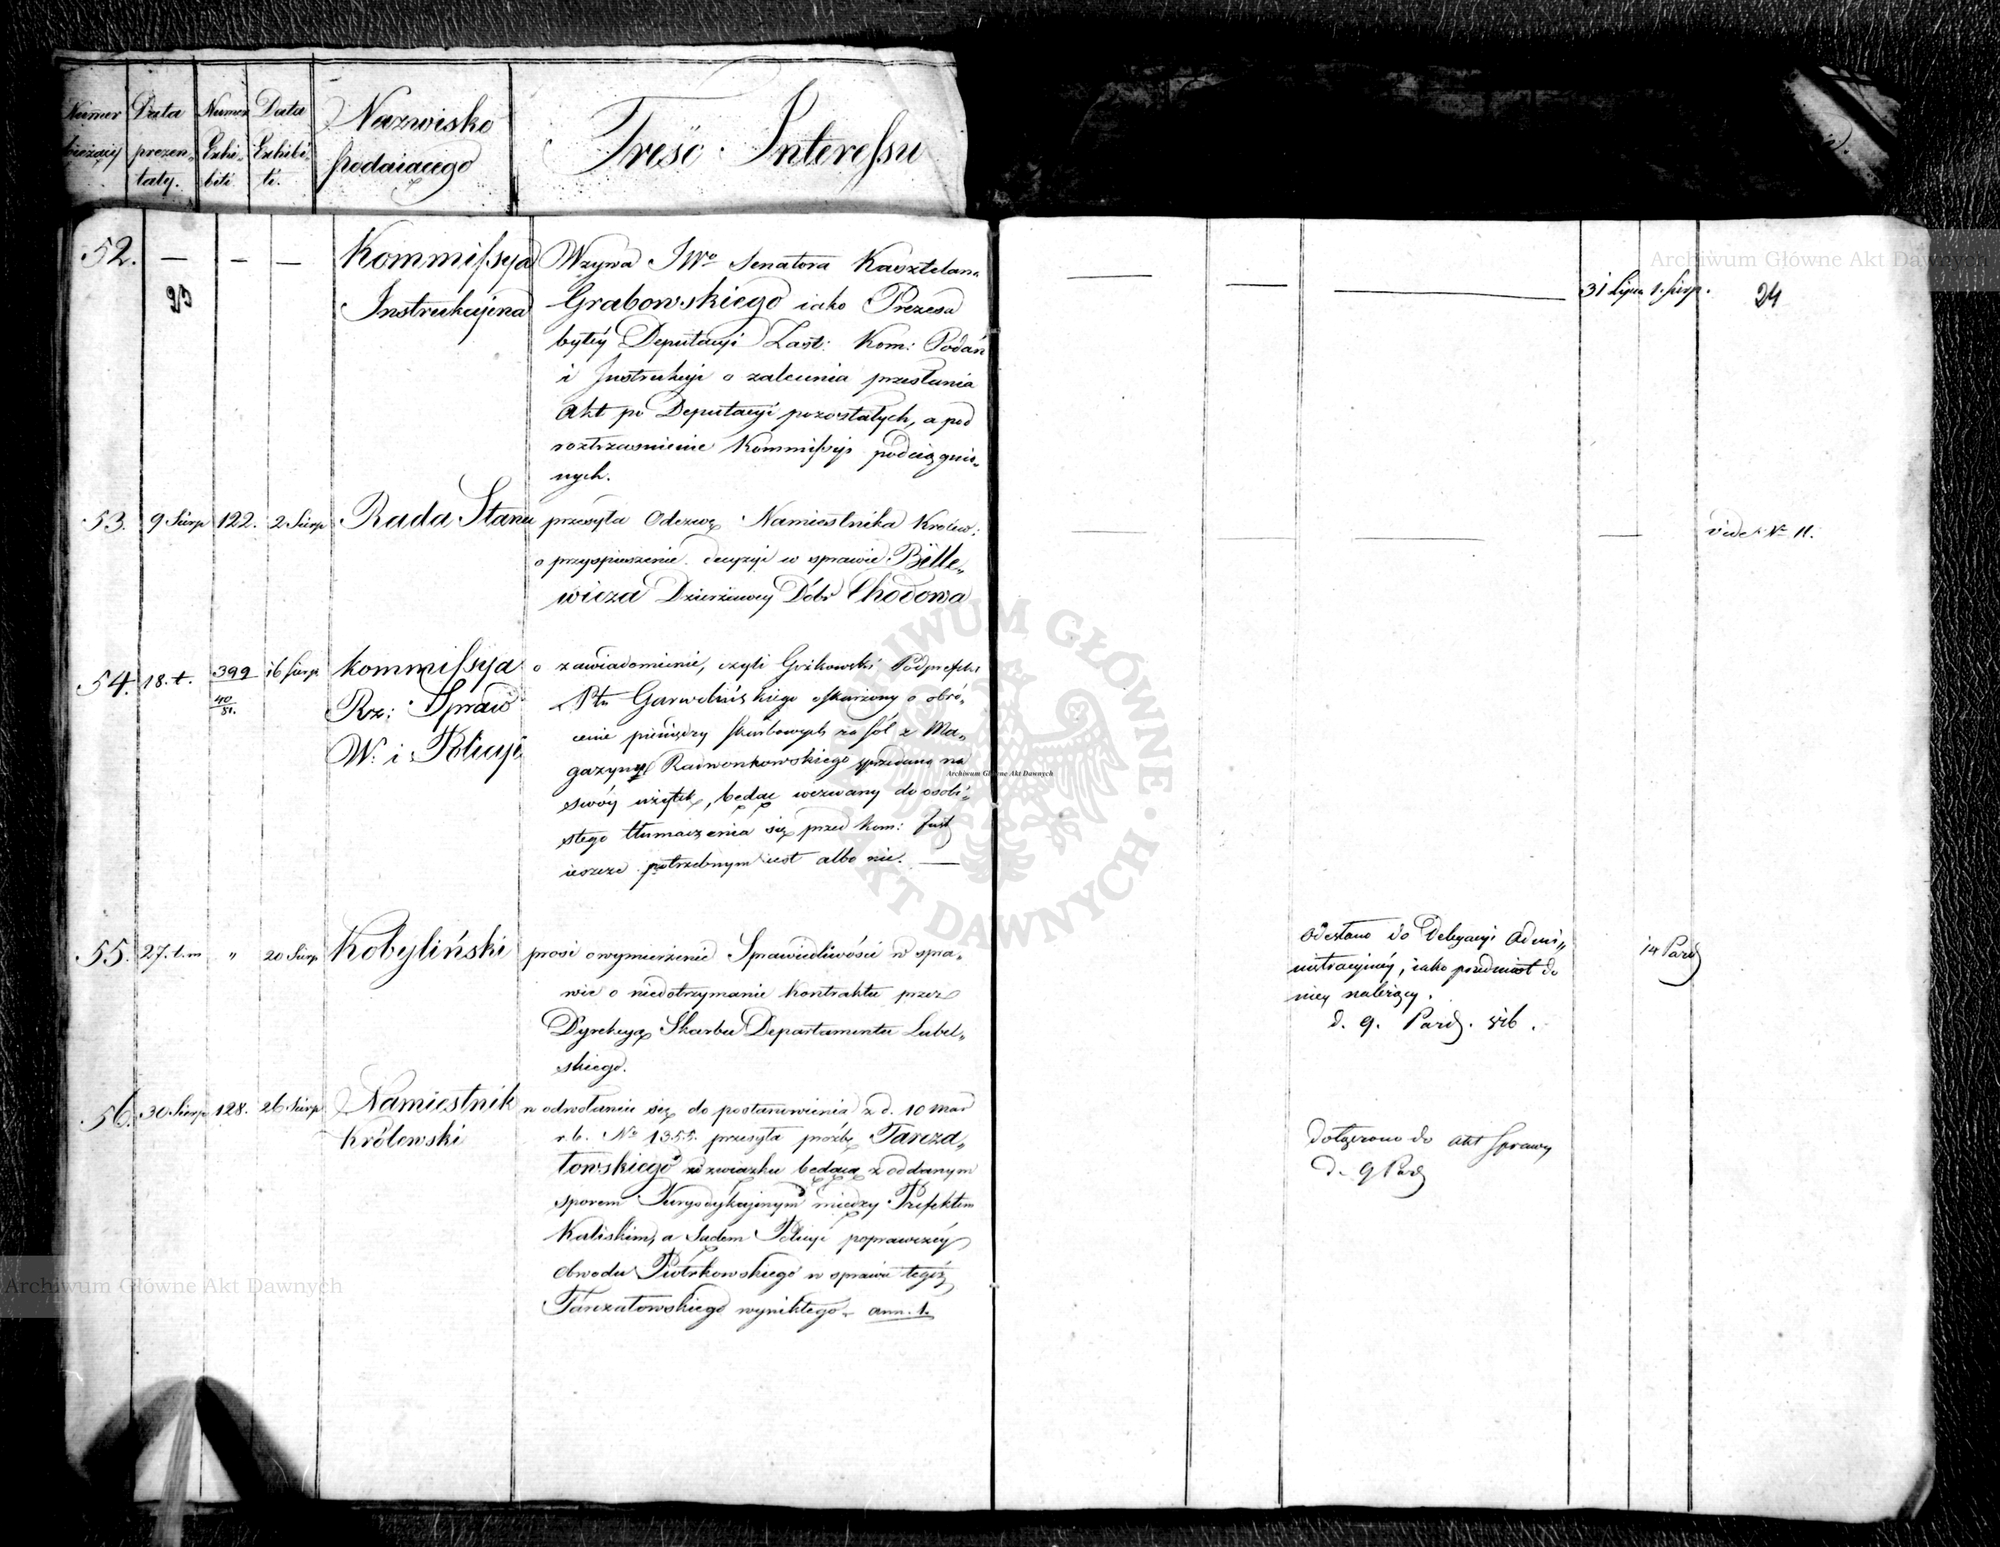 Numer Data Numer Data Nazwisko Treść Interessu
bieżący prezen- Exhi- Exhibi- podaiącego
taty. biti ti.
52. — — — Kommissya Wzywa JWo Senatora Kasztelana
Instrukcyjna Grabowskiego iako Prezesa
byłéy Deputacyi Zast: Kom: Podań
i Instrukcyi o zalecenia przesłania
Akt po Deputacyi pozostałych, a pod
roztrząsnienie Kommissyi podciągnio-
nych.
31 Lipca 1. Sierp. 24
53. 9 Sierp 122. 2 Sierp Rada Stanu przesyła Odezwę Namiestnika Królew:
o przyspieszenie decyzyi w sprawie Bille-
wicza Dzierżawcy Dóbr Chodowa
vide No 11.
54. 18. t. 399 16 Sierp. Kommissya o zawiadomienie, czyli Gożkowski Podprefekt
40/81. Rz: Spraw Ptu Garwolińskiego oskarżony o obró-
W. i Policyi cenie pieniędzy skarbowych za sól z Ma-
gazynu Radwonkowskiego sprzedaną na
swóy użytek, będąc wezwany do osobi-
stego tłumaczenia się przed Kom: Inst
ieszcze potrzebnym iest albo nie. —
55. 27. t. m „ 20 Sierp Kobyliński prosi o wymierzenie Sprawiedliwości w spra-
wie o niedotrzymanie kontraktu przez
Dyrekcyą Skarbu Departamentu Lubel-
skiego.
odesłano do Delegacyi Admi-
nistracyjnéy, iako przedmiot do
niey należący.
d. 9. Paźd. 816.
14 Paźd
56. 30 Sierp 128. 26 Sierp Namiestnik w odwołaniu się do postanowienia z d. 10 Mar
Królewski r. b. No 1355. przesyła proźbę Tarcza-
łowskiego w związku będącą z oddanym
sporem Jurysdykcyjnym między Prefektem
Kaliskim, a Sądem Policyi poprawczéy
Obwodu Piotrkowskiego w sprawie tegoż
Tarczałowskiego wynikłego. ann. 1.
dołączono do akt sprawy
d. 9 Paźd
Archiwum Główne Akt Dawnych
Archiwum Główne Akt Dawnych
Archiwum Główne Akt Dawnych
ARCHIWUM GŁÓWNE AKT DAWNYCH